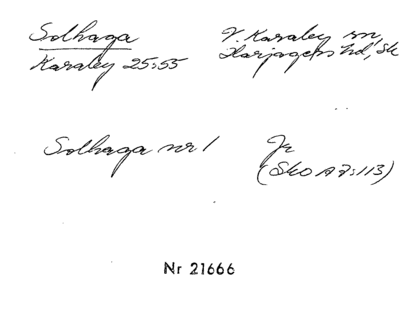 Solhaga
Karaby 25:55
V. Karaby sn,
Harjagers hd, Sk
Solhaga nr 1
Ja
(SkO A 7:113)
Nr 21666